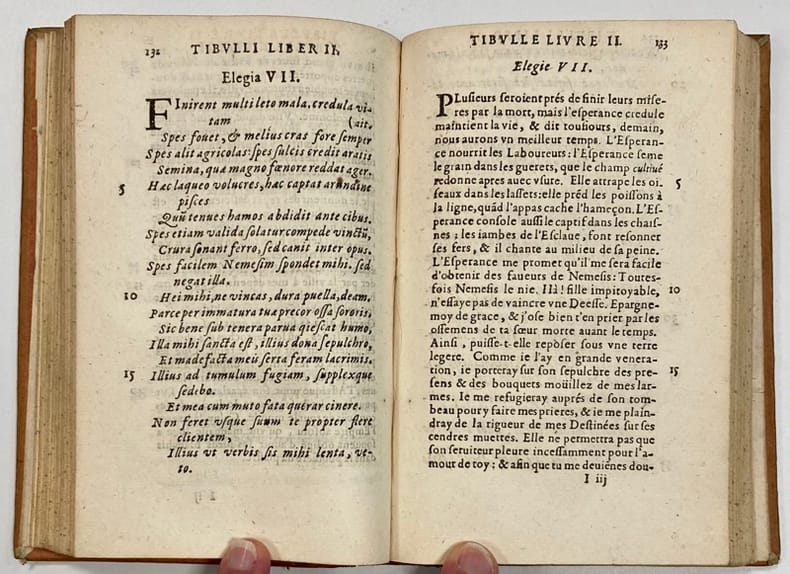 132 TIBVLLI LIBER II.
Elegia VII.
FInirent multi leto mala. credula vi-
tam (ait.
Spes fouet, & melius cras fore semper
Spes alit agricolas: spes sulcis credit aratis
Semina, quæ magno fœnore reddat ager.
5 Hæc laqueo volucres, hæc captat arundine
pisces
Quũ tenues hamos abdidit ante cibus.
Spes etiam valida solatur compede vinctũ,
Crura sonant ferro, sed canit inter opus.
Spes facilem Nemesim spondet mihi. sed
negat illa.
10 Hei mihi, ne vincas, dura puella, deam.
Parce per immatura tuæ precor ossa sororis,
Sic bene sub tenera parua quiescat humo,
Illa mihi sancta est, illius dona sepulchro,
Et madefacta meis serta feram lacrimis.
15 Illius ad tumulum fugiam, supplexque
sedebo.
Et mea cum muto fata quærar cinere.
Non feret vsque suum te propter flere
clientem,
Illius vt verbis sis mihi lenta, ve-
to.
TIBVLLE LIVRE II. 133
Elegie VII.
PLusieurs seroient prés de finir leurs mise-
res par la mort, mais l'esperance credule
maintient la vie, & dit tousiours, demain,
nous aurons vn meilleur temps. L'Esperan-
ce nourrit les Laboureurs: l'Esperance seme
le grain dans les guerets, que le champ cultiué
redonne apres auec vsure. Elle attrape les oi- 5
seaux dans les lassets: elle prẽd les poissõns à
la ligne, quãd l'appas cache l'hameçon. L'Es-
perance console aussi le captif dans les chais-
nes; les iambes de l'Esclaue, font resonner
ses fers, & il chante au milieu de sa peine.
L'Esperance me promet qu'il me sera facile
d'obtenir des faueurs de Nemesis: Toutes-
fois Nemesis le nie. Hà! fille impitoyable, 10
n'essaye pas de vaincre vne Deesse. Epargne-
moy de grace, & j'ose bien t'en prier par les
ossemens de ta sœur morte auant le temps.
Ainsi, puisse-t-elle reposer sous vne terre
legere. Comme ie l'ay en grande venera-
tion, ie porteray sur son sepulchre des pre- 15
sens & des bouquets moüillez de mes lar-
mes. Ie me refugieray auprés de son tom-
beau pour y faire mes prieres, & ie me plain-
dray de la rigueur de mes Destinées sur ses
cendres muettes. Elle ne permettra pas que
son seruiteur pleure incessamment pour l'a-
mour de toy; & afin que tu me deuiẽnes dou-
I iij